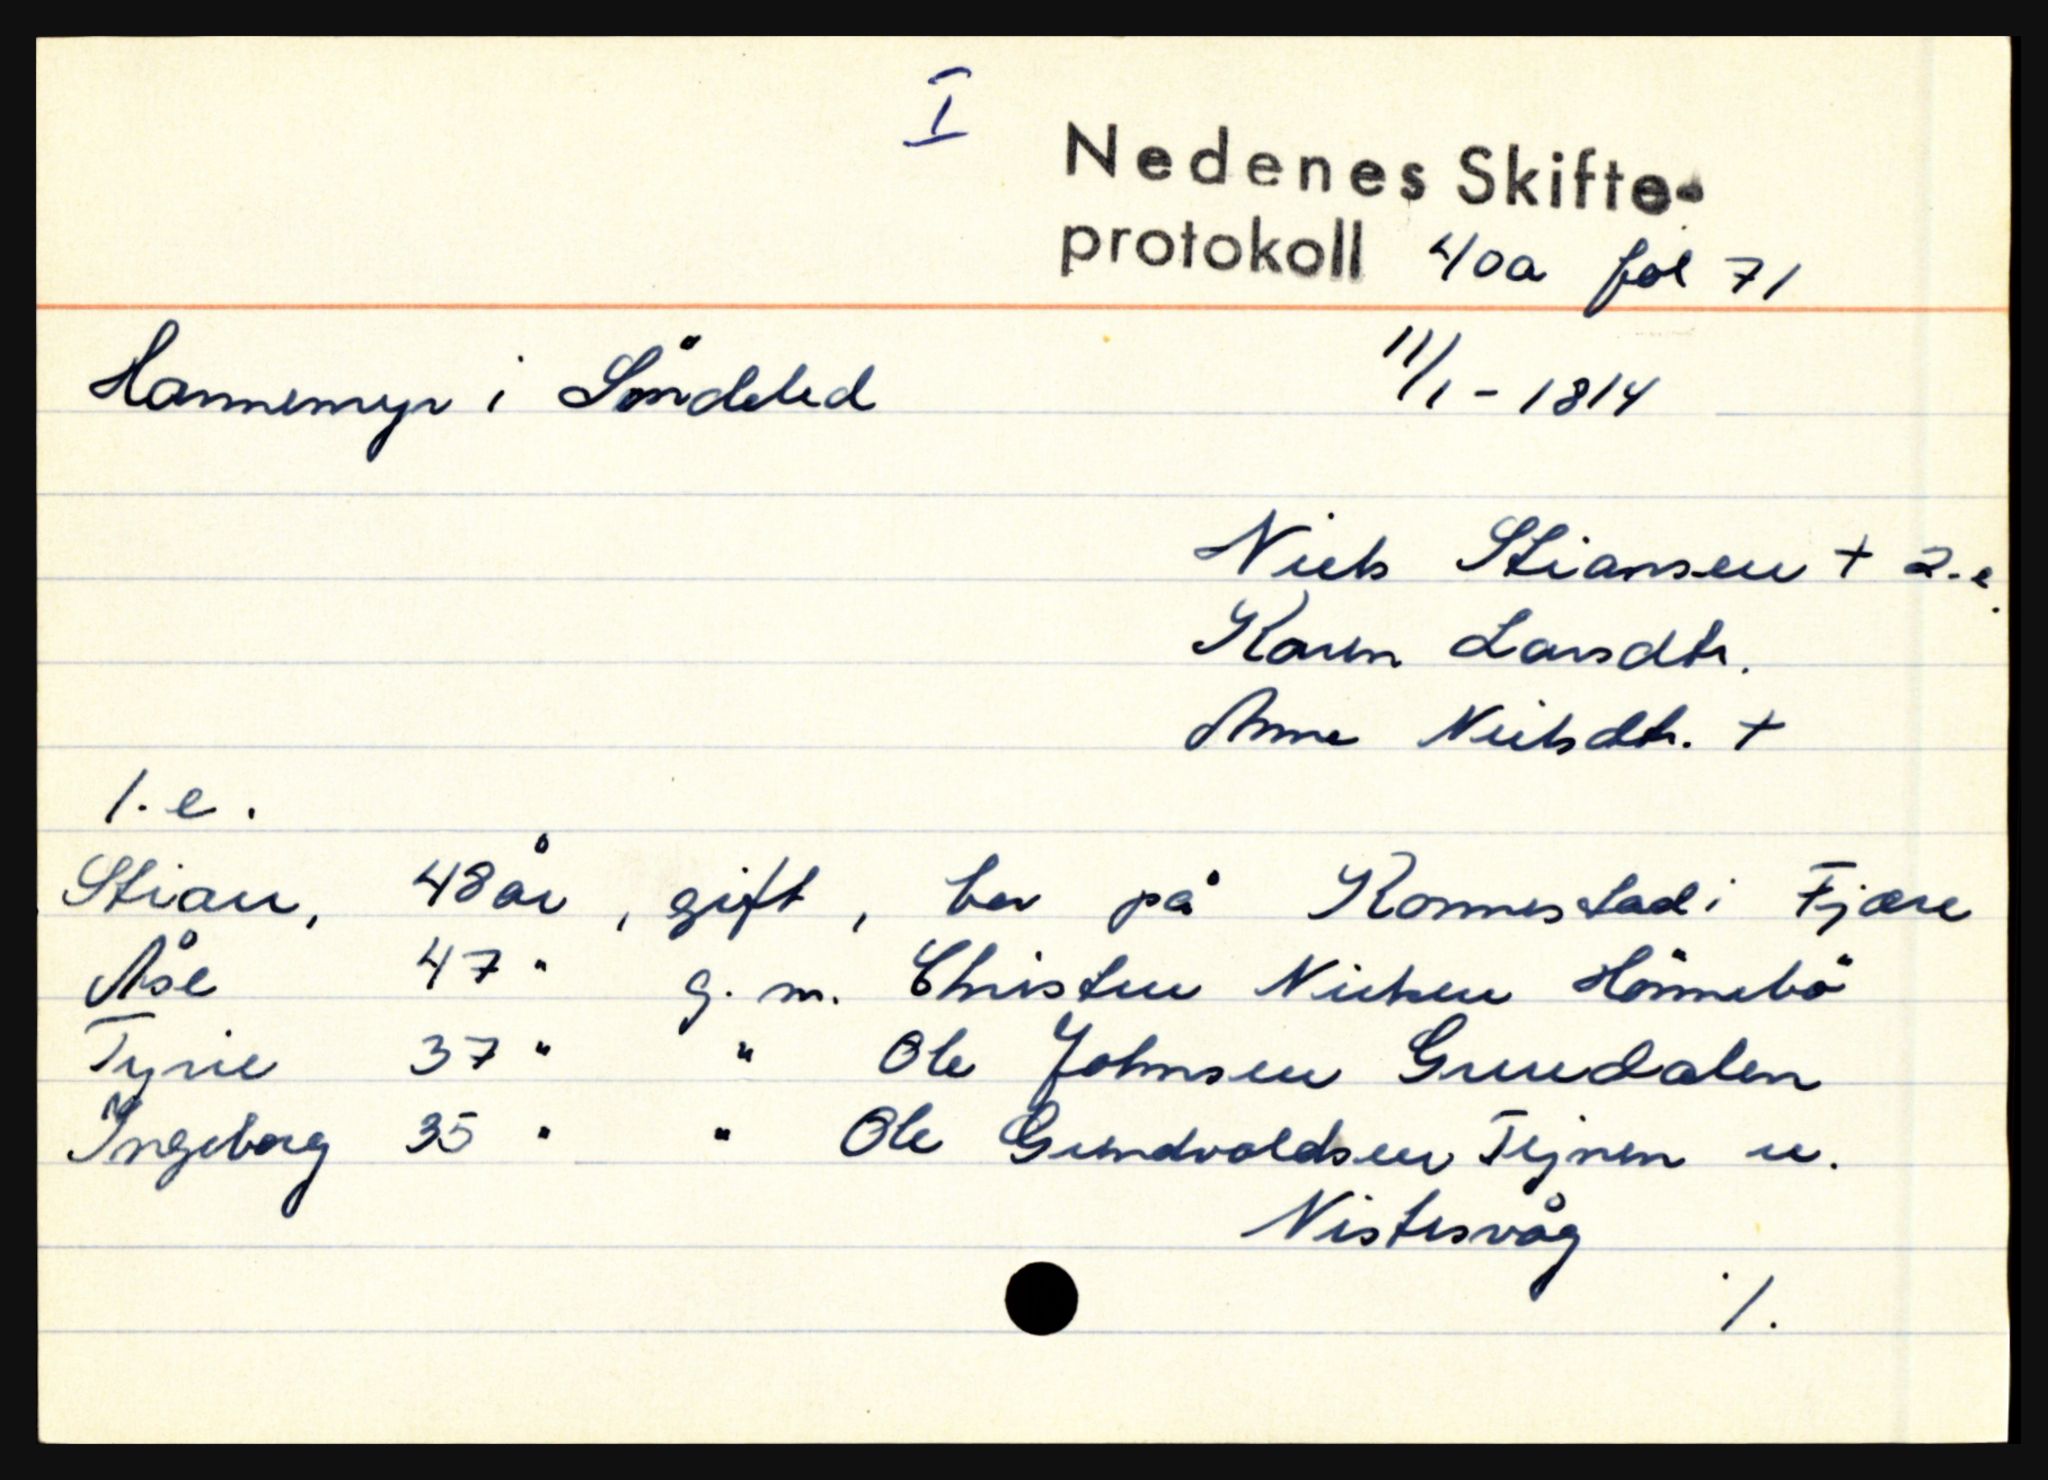 I
Nedenes Skifte-
protokoll 40a fol 71
Hannemyr i Söndeled 11/1 - 1814
Niels Stiansen + 2.e.
Karen Larsdtr.
Anne Nielsdtr. +
1. e.
Stian, 48 år, gift, bor på Ronnestad i Fjære
Åse 47 " g. m. Christen Nielsen Hönnebö
Tyrie 37 " " Ole Johnsen Gruudalen
Ingeborg 35 " " Ole Gundvaldsen Tejnen u.
Nistesvåg
./.